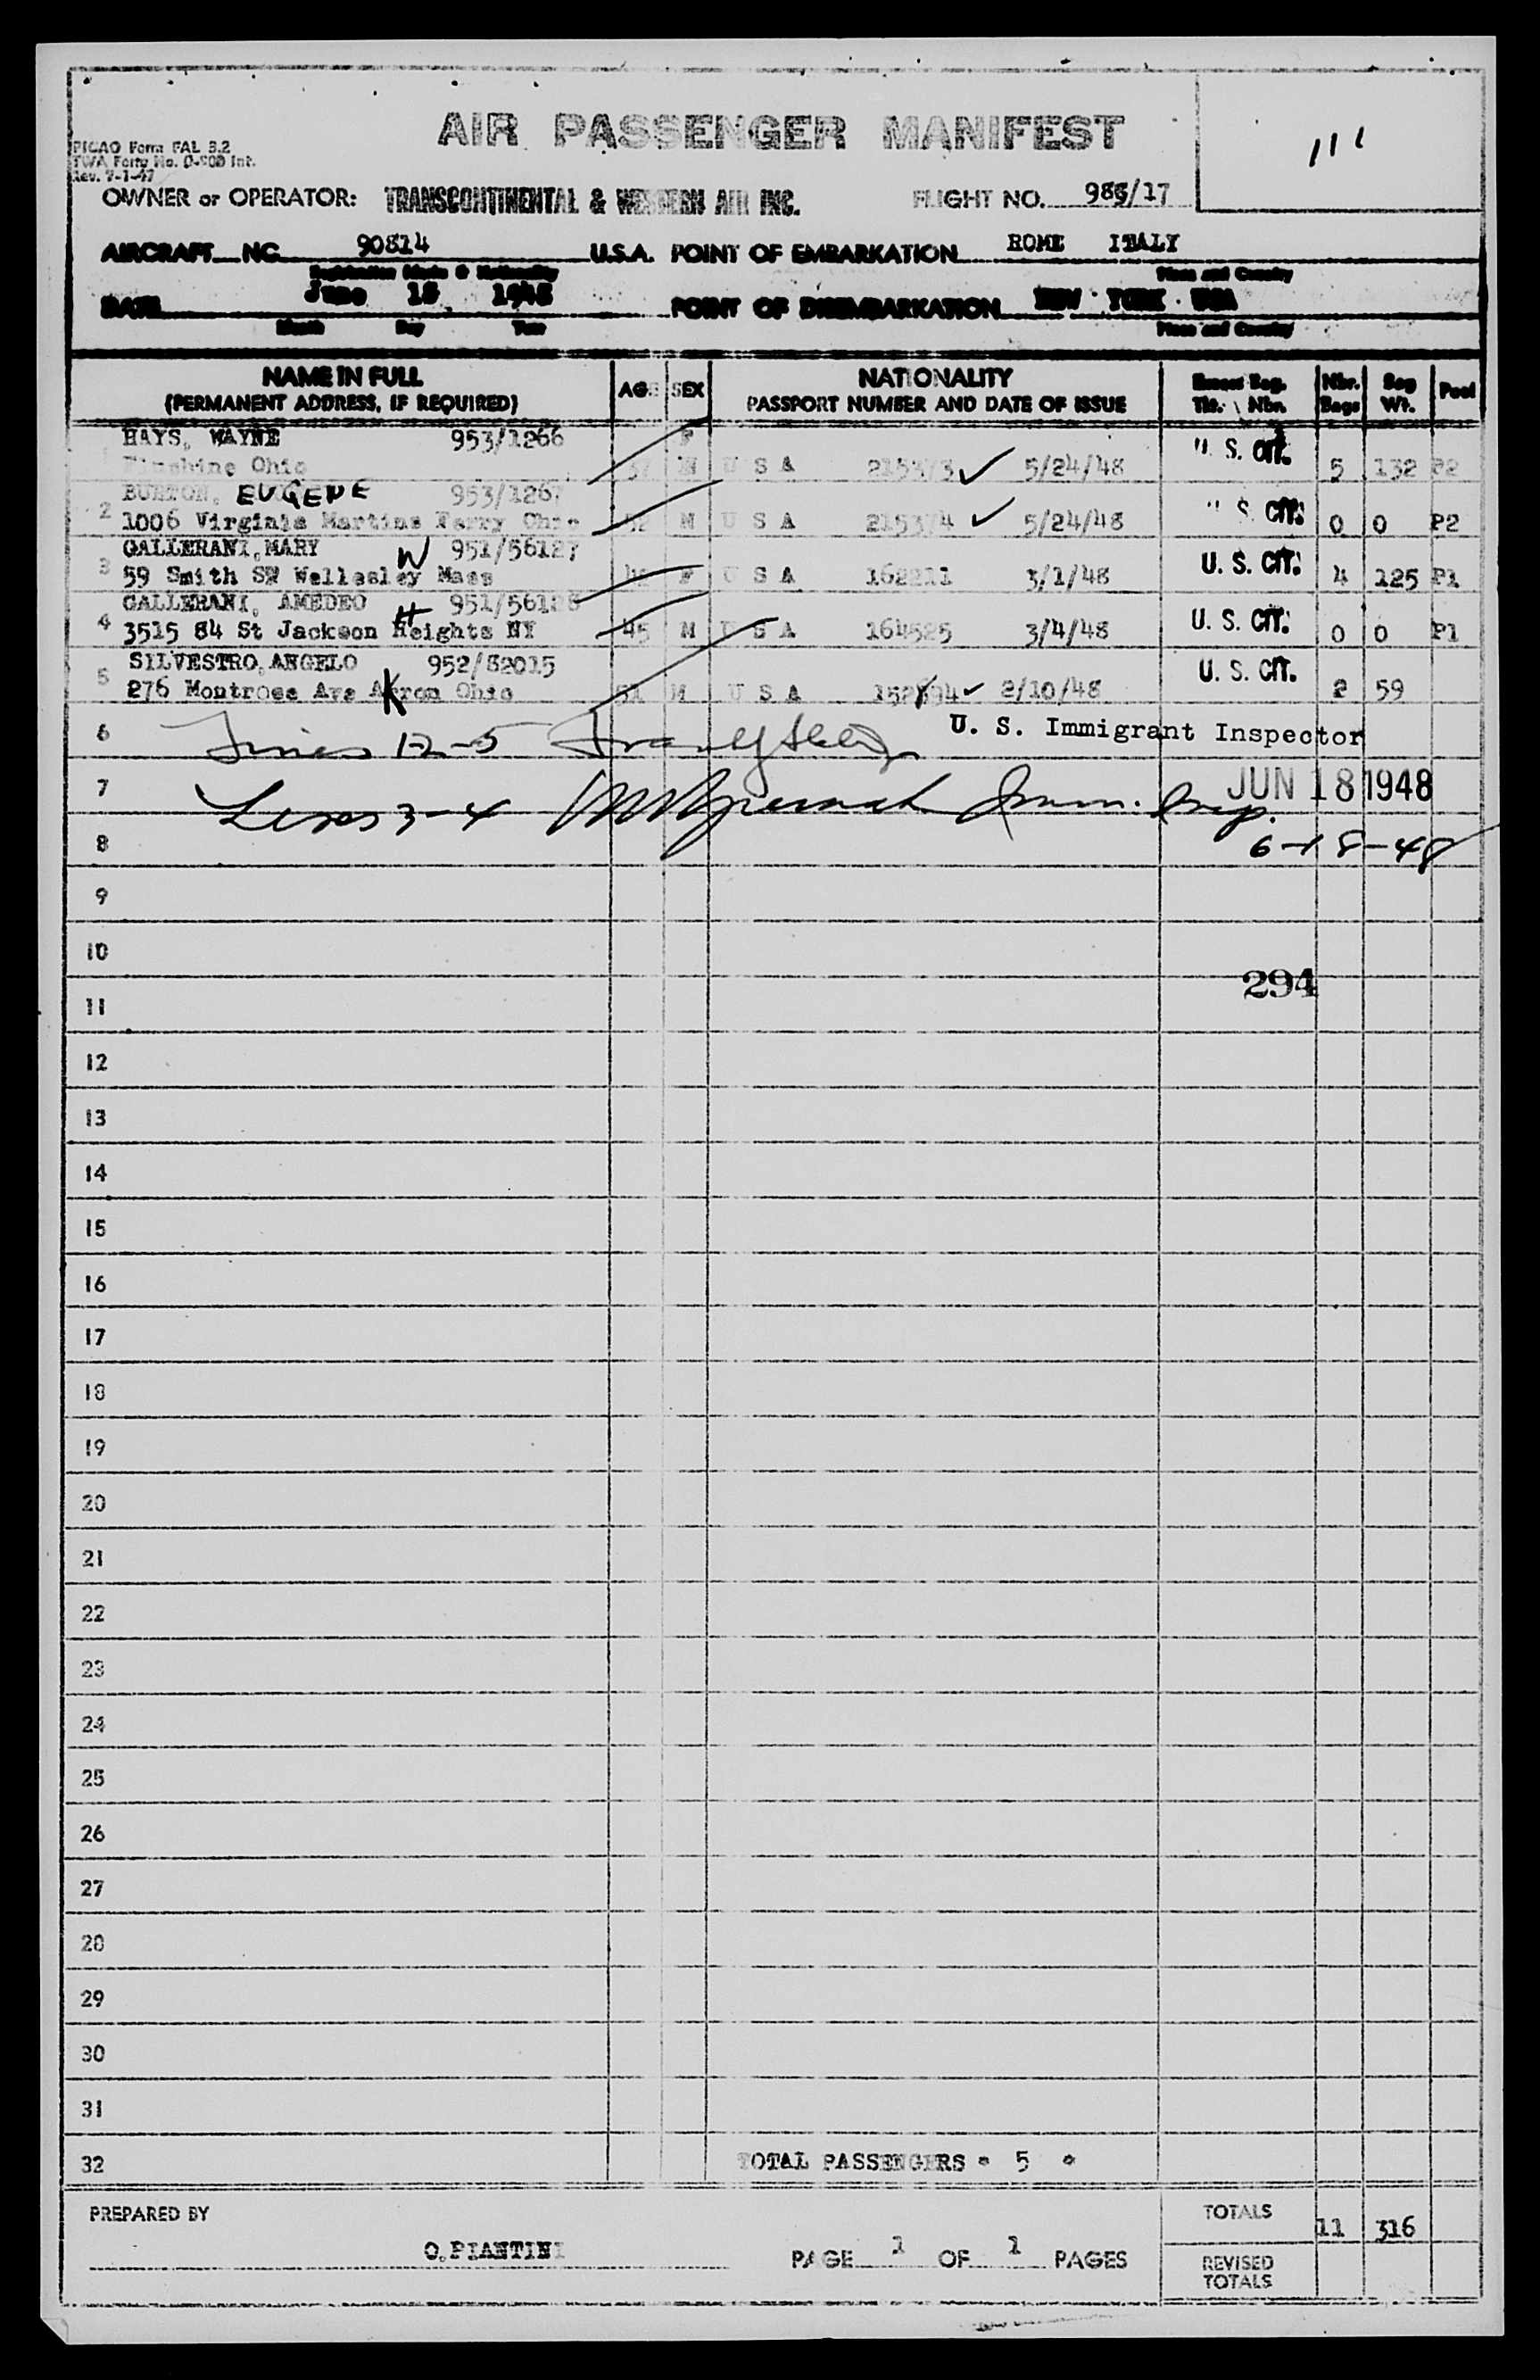 AIR PASSENGER MANIFEST
PICAO Form FAL 3.2
TWA Form No. O-900 Int.
Rev. 7-1-47
111
OWNER or OPERATOR: TRANSCONTINENTAL & WESTERN AIR INC. FLIGHT NO. 983/17
AIRCRAFT NC 90814 U.S.A. POINT OF EMBARKATION ROME ITALY
Registration Marks & Nationality Place and Country
DATE June 18 1948 POINT OF DISEMBARKATION NEW YORK USA
Month Day Year Place and Country
NAME IN FULL AGE SEX NATIONALITY Excess Bag. Nbr. Bag Pool
(PERMANENT ADDRESS, IF REQUIRED) PASSPORT NUMBER AND DATE OF ISSUE Tkt. Nbr. Bags Wt.
HAYS, WAYNE 953/1266 U. S. CIT.
Ohio 37 M U S A 215373 ✓ 5/24/48 5 132 P2
BURTON, EUGENE 953/1267 U. S. CIT.
2 1006 Virginia Martins Ferry Ohio 52 M U S A 215374 ✓ 5/24/48 0 0 P2
GALLERANI, MARY W 951/56127 U. S. CIT.
3 59 Smith ST Wellesley Mass F U S A 162211 3/1/48 4 125 P1
GALLERANI, AMEDEO H 951/56128 U. S. CIT.
4 3515 84 St Jackson Heights NY 45 M U S A 164525 3/4/48 0 0 P1
SILVESTRO, ANGELO 952/82015 U. S. CIT.
5 276 Montrose Ave Akron Ohio 51 M U S A 152894 ✓ 2/10/48 2 59
6 Lines 1-2-5 U. S. Immigrant Inspector
7 Lines 3-4 Imm. Insp. JUN 18 1948
8 6-18-48
9
10
294
11
12
13
14
15
16
17
18
19
20
21
22
23
24
25
26
27
28
29
30
31
32 TOTAL PASSENGERS = 5 =
PREPARED BY TOTALS 11 316
O.PIANTINI PAGE 1 OF 1 PAGES REVISED
TOTALS